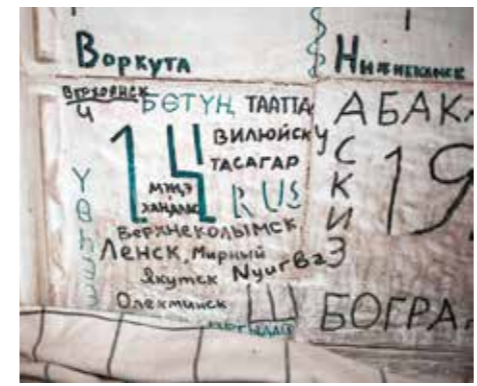 Воркута
Нижнекамск
Верхоянск
БӨТҮҢ ТААТТА
14
ВИЛЮЙСК
ТАСАГАР
RUS
МЭҢЭ
ХАҢАЛАС
ВЕРХНЕКОЛЫМСК
ЛЕНСК, Мирный
Якутск Nyurba
Олекминск
АБАК
УСКИЗ
19
БОГРА